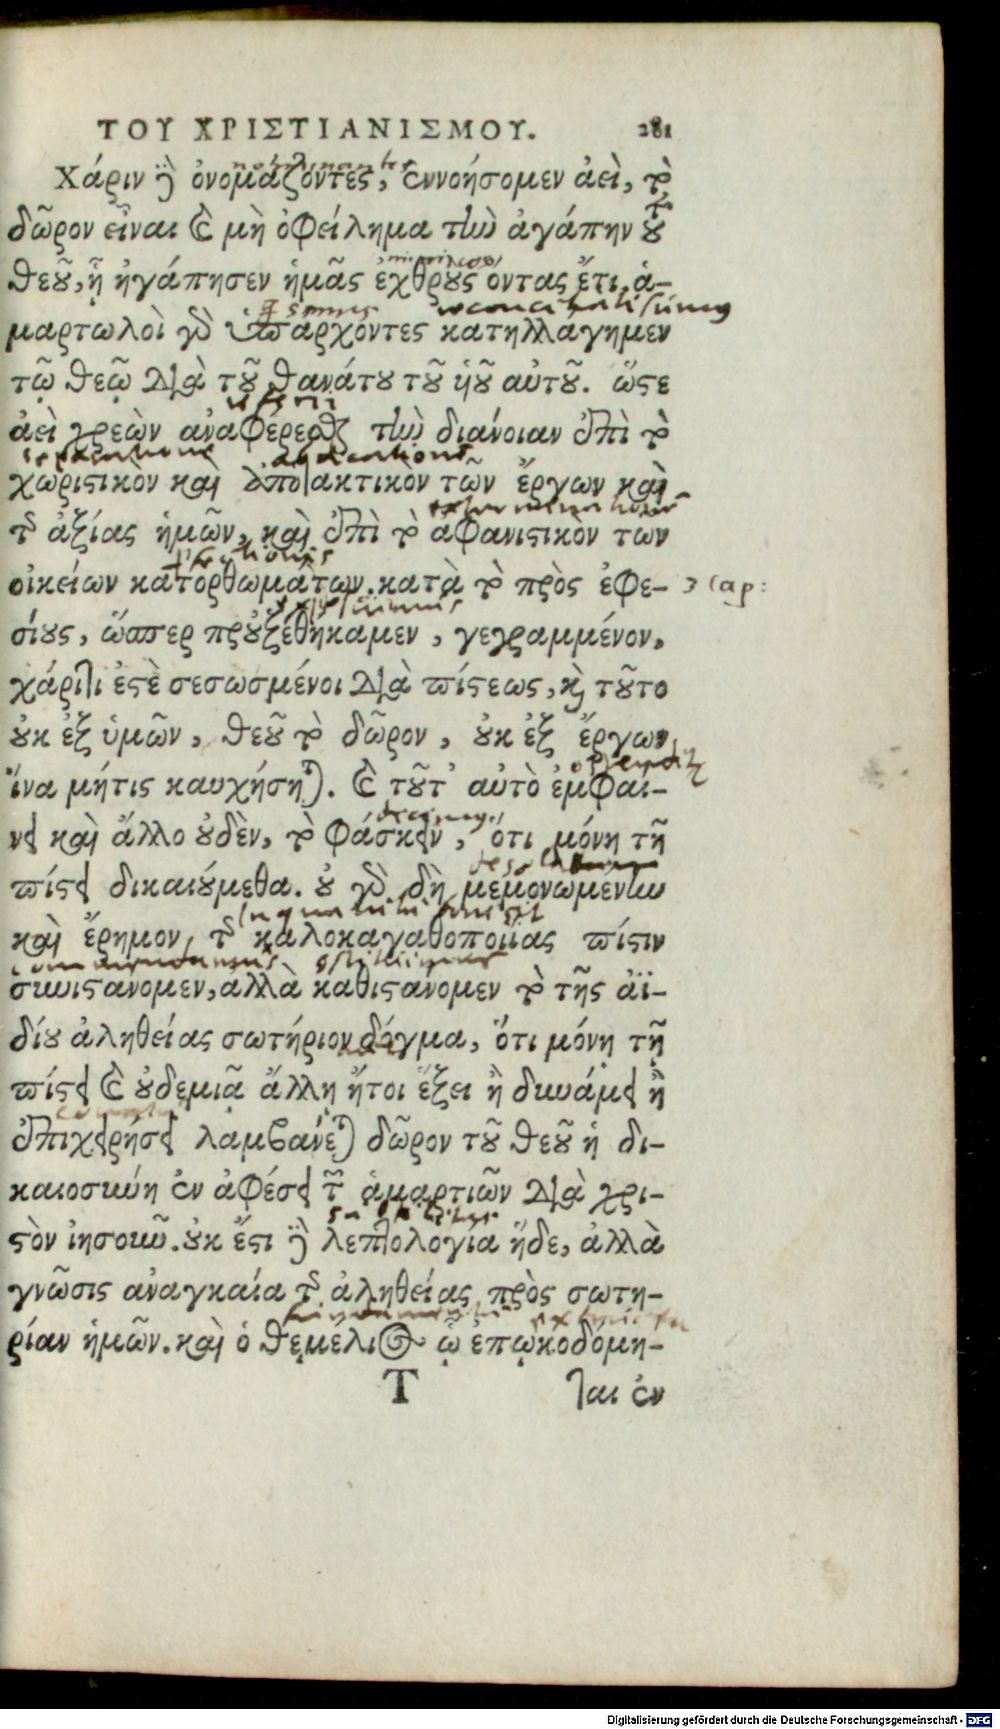 ΤΟΥ ΧΡΙΣΤΙΑΝΙΣΜΟΥ. 281
Χάριν δὲ ὀνομάζοντες, ἐννοήσομεν ἀεὶ, τὸ
δῶρον εἶναι καὶ μὴ ὀφείλημα τὴν ἀγάπην τοῦ
θεοῦ, ᾗ ἠγάπησεν ἡμᾶς ἐχθροὺς ὄντας ἔτι, ἁ-
μαρτωλοὶ γὰρ ὑπάρχοντες κατηλλάγημεν
τῷ θεῷ διὰ τοῦ θανάτου τοῦ υἱοῦ αὐτοῦ. ὥστε
ἀεὶ χρεὼν ἀναφέρεσθαι τὴν διάνοιαν ἐπὶ τὸ
χωριστικὸν καὶ ἀποτακτικὸν τῶν ἔργων καὶ
τῆς ἀξίας ἡμῶν, καὶ ἐπὶ τὸ ἀφανιστικὸν των
οἰκείων κατορθωμάτων. κατὰ τὸ πρὸς ἐφε-
σίους, ὥσπερ προὐξεθήκαμεν, γεγραμμένον,
χάριτι ἐστὲ σεσωσμένοι διὰ πίστεως, καὶ τοῦτο
οὐκ ἐξ ὑμῶν, θεοῦ τὸ δῶρον, οὐκ ἐξ ἔργων,
ἵνα μήτις καυχήσηται. καὶ τοῦτ' αὐτὸ ἐμφαί-
νει καὶ ἄλλο οὐδὲν, τὸ φάσκειν, ὅτι μόνῃ τῇ
πίστει δικαιούμεθα. οὐ γὰρ δὴ μεμονωμένην
καὶ ἔρημον, τῆς καλοκαγαθοποιΐας πίστιν
συνιστάνομεν, ἀλλὰ καθιστάνομεν τὸ τῆς ἀϊ-
δίου ἀληθείας σωτήριον δόγμα, ὅτι μόνῃ τῇ
πίστει καὶ οὐδεμιᾷ ἄλλῃ ἤτοι ἕξει ἢ δυνάμει ἢ
ἐπιχειρήσει λαμβάνεται δῶρον τοῦ θεοῦ ἡ δι-
καιοσύνη ἐν ἀφέσει τῶν ἁμαρτιῶν διὰ χρι-
στὸν ἰησοῦν. οὐκ ἔστι δὲ λεπτολογία ἥδε, ἀλλὰ
γνῶσις ἀναγκαία τῆς ἀληθείας πρὸς σωτη-
ρίαν ἡμῶν. καὶ ὁ θεμέλιος ᾧ ἐπῳκοδόμη-
Τ ται ἐν
Digitalisierung gefördert durch die Deutsche Forschungsgemeinschaft - DFG